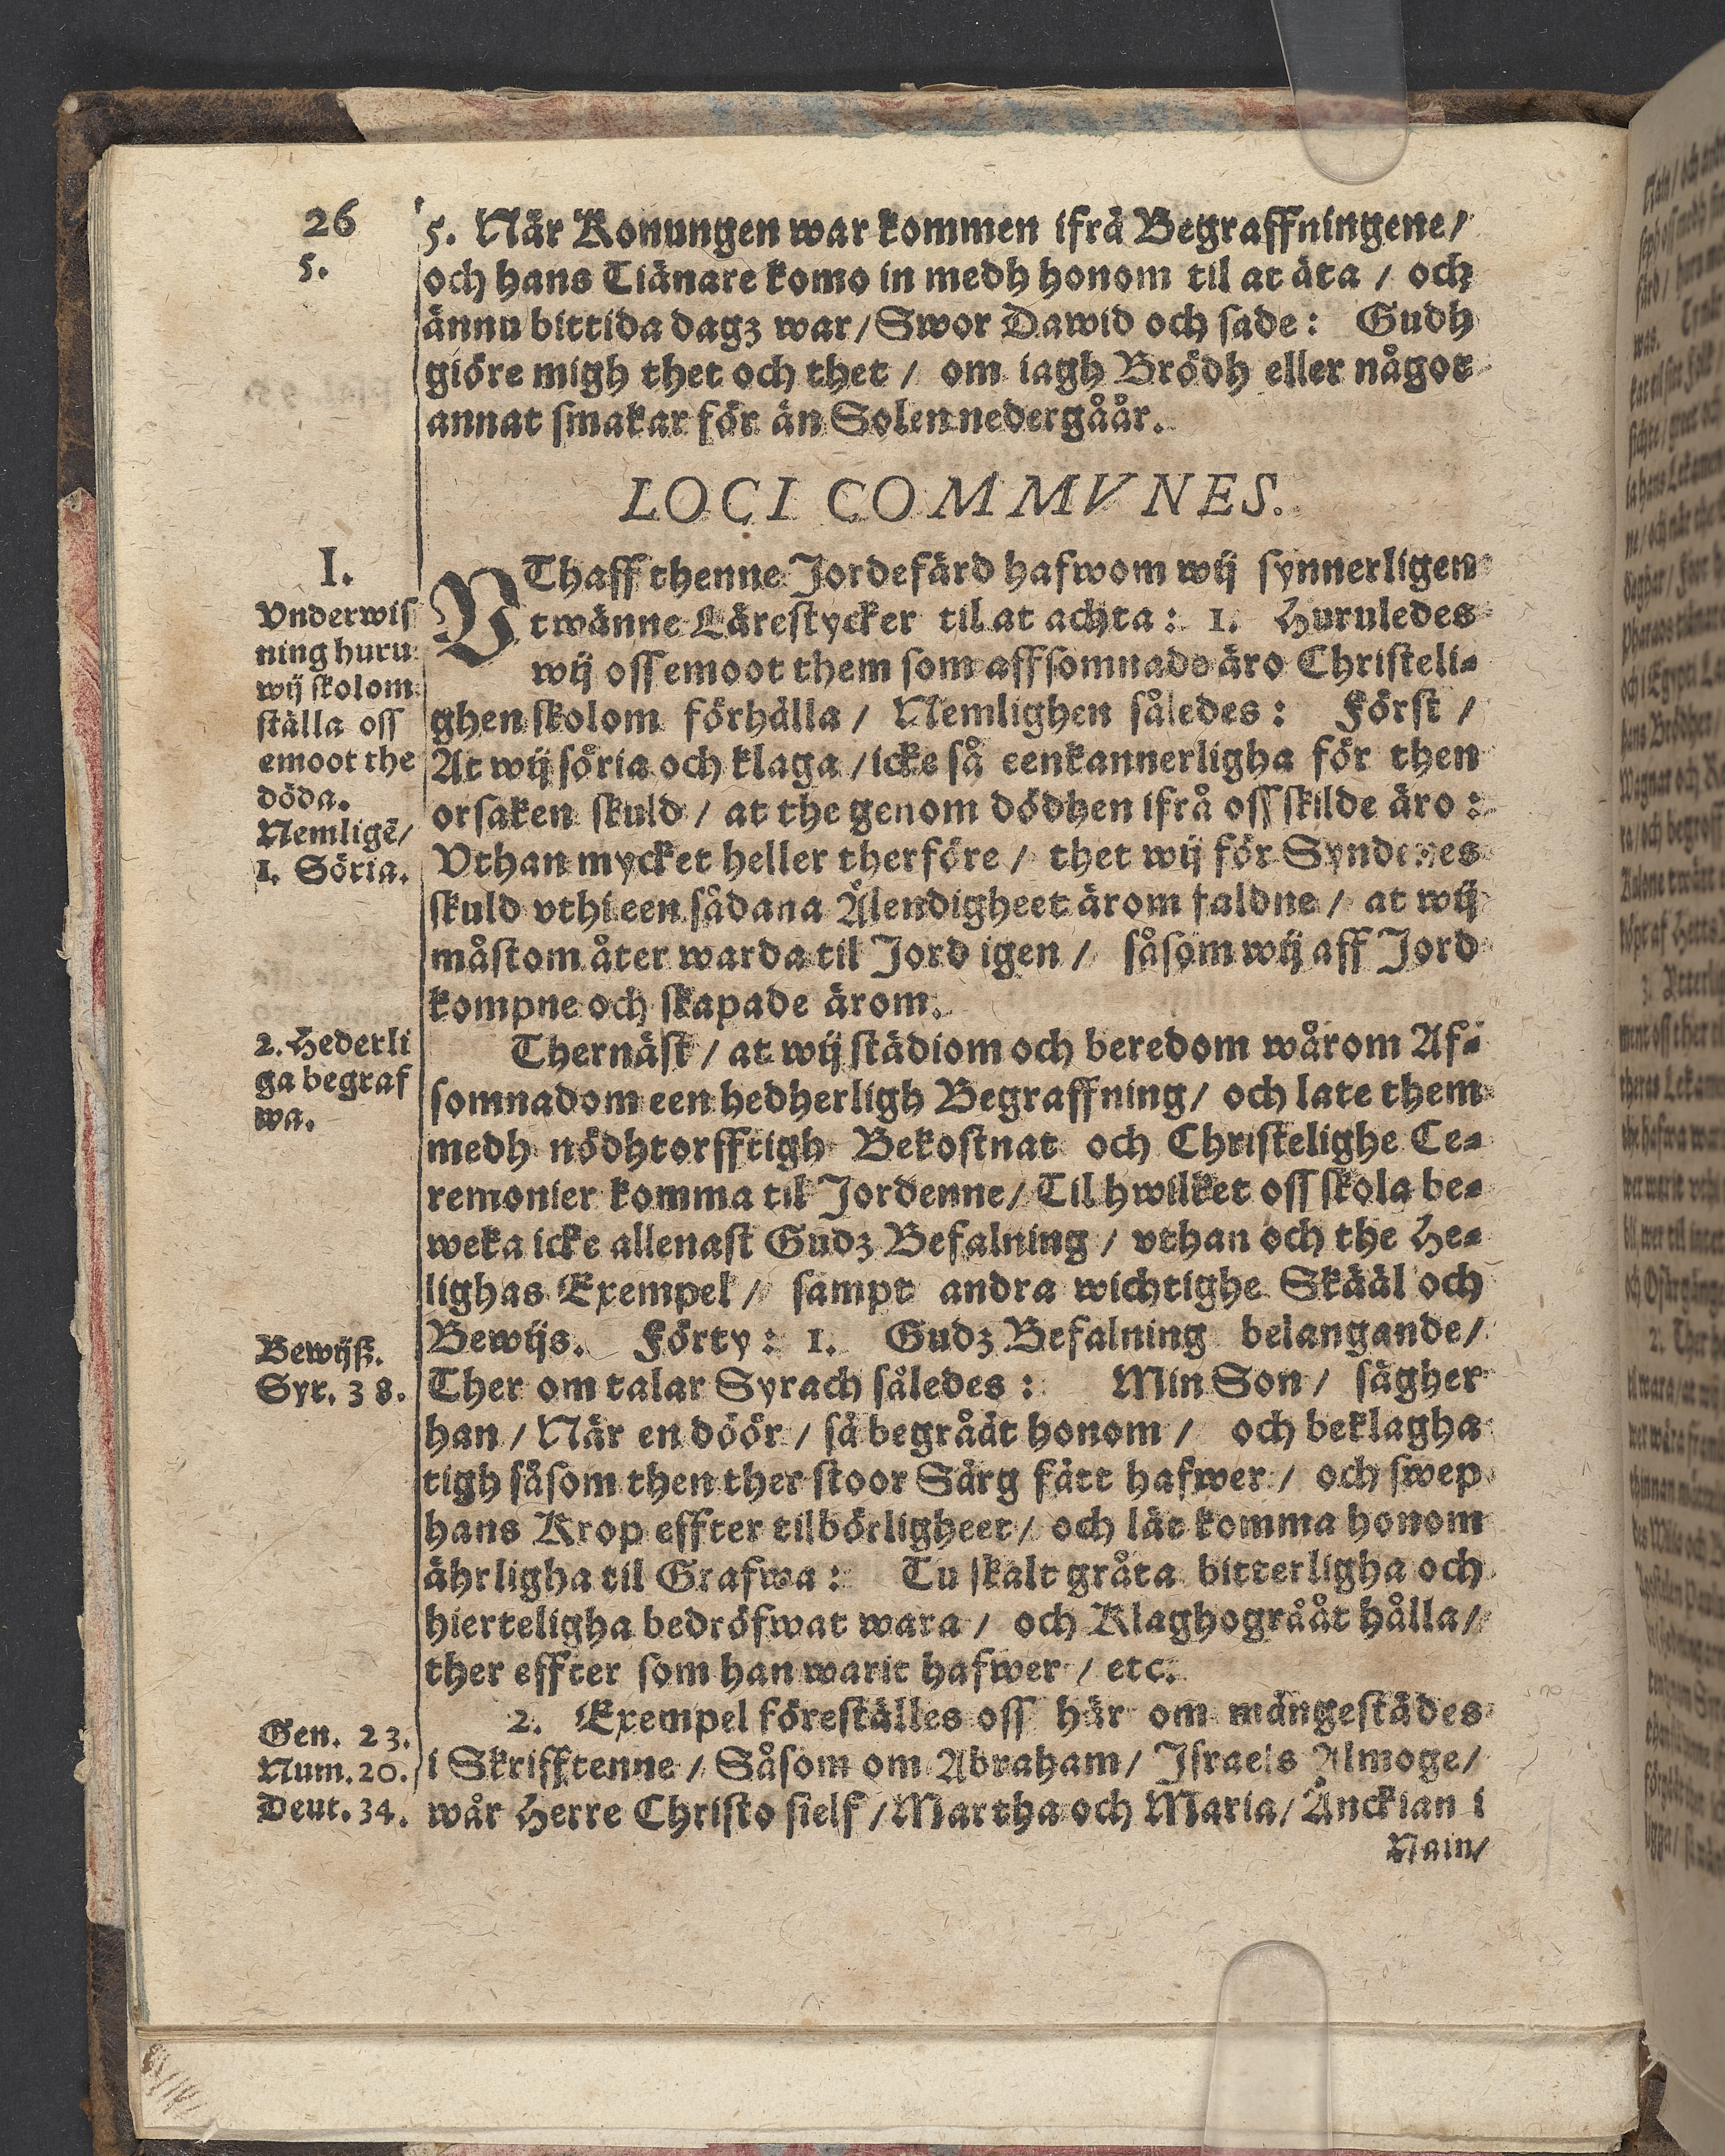 26
5.
5. När Konungen war kommen ifrå Begraffningene/
och hans Tiänare komo in medh honom til at äta / och
ännu bittida dagz war/Swor Dawid och sade: Gudh
giöre migh thet och thet / om iagh Brödh eller något
annat smakar för än Solen nedergåår.
LOCI COMMVNES.
I.
Vnderwis
ning huru
wij skolom
ställa oss
emoot the
döda.
Nemligē/
1. Söria.
VThaff thenne Jordefärd hafwom wij synnerligen
twänne Lärestycker til at achta: 1. Huruledes
wij oss emoot them som affsomnade äro Christeli-
ghen skolom förhålla / Nemlighen således: Först /
At wij söria och klaga /icke så eenkannerligha för then
orsaken skuld / at the genom dödhen ifrå oss skilde äro :
Vthan mycket heller therföre / thet wij för Syndenes
skuld vthi een sådana Älendigheet ärom faldne / at wij
måstom åter warda til Jord igen / såsom wij aff Jord
kompne och skapade ärom.
2. Hederli
ga begraf
wa.
Thernäst / at wij städiom och beredom wårom Af-
somnadom een hedherligh Begraffning/ och late them
medh nödhtorfftigh Bekostnat och Christelighe Ce-
remonier komma til Jordenne/ Til hwilket oss skola be-
weka icke allenast Gudz Befalning / vthan och the He-
lighas Exempel / sampt andra wichtighe Skääl och
Bewijs. Förty: 1. Gudz Befalning belangande/
Bewijß.
Syr. 38.
Ther om talar Syrach således: Min Son / sägher
han / När en döör / så begrååt honom / och beklagha
tigh såsom then ther stoor Sårg fått hafwer / och swep
hans Krop effter tilbörligheet/ och låt komma honom
ährligha til Grafwa: Tu skalt gråta bitterligha och
hierteligha bedröfwat wara / och Klaghogrååt hålla/
ther effter som han warit hafwer / etc.
2. Exempel föreställes oss här om mångestädes
Gen. 23.
Num. 20.
Deut. 34.
i Skrifftenne / Såsom om Abraham/ Israels Almoge/
wår Herre Christo sielf /Martha och Maria/ Änckian i
Nain/